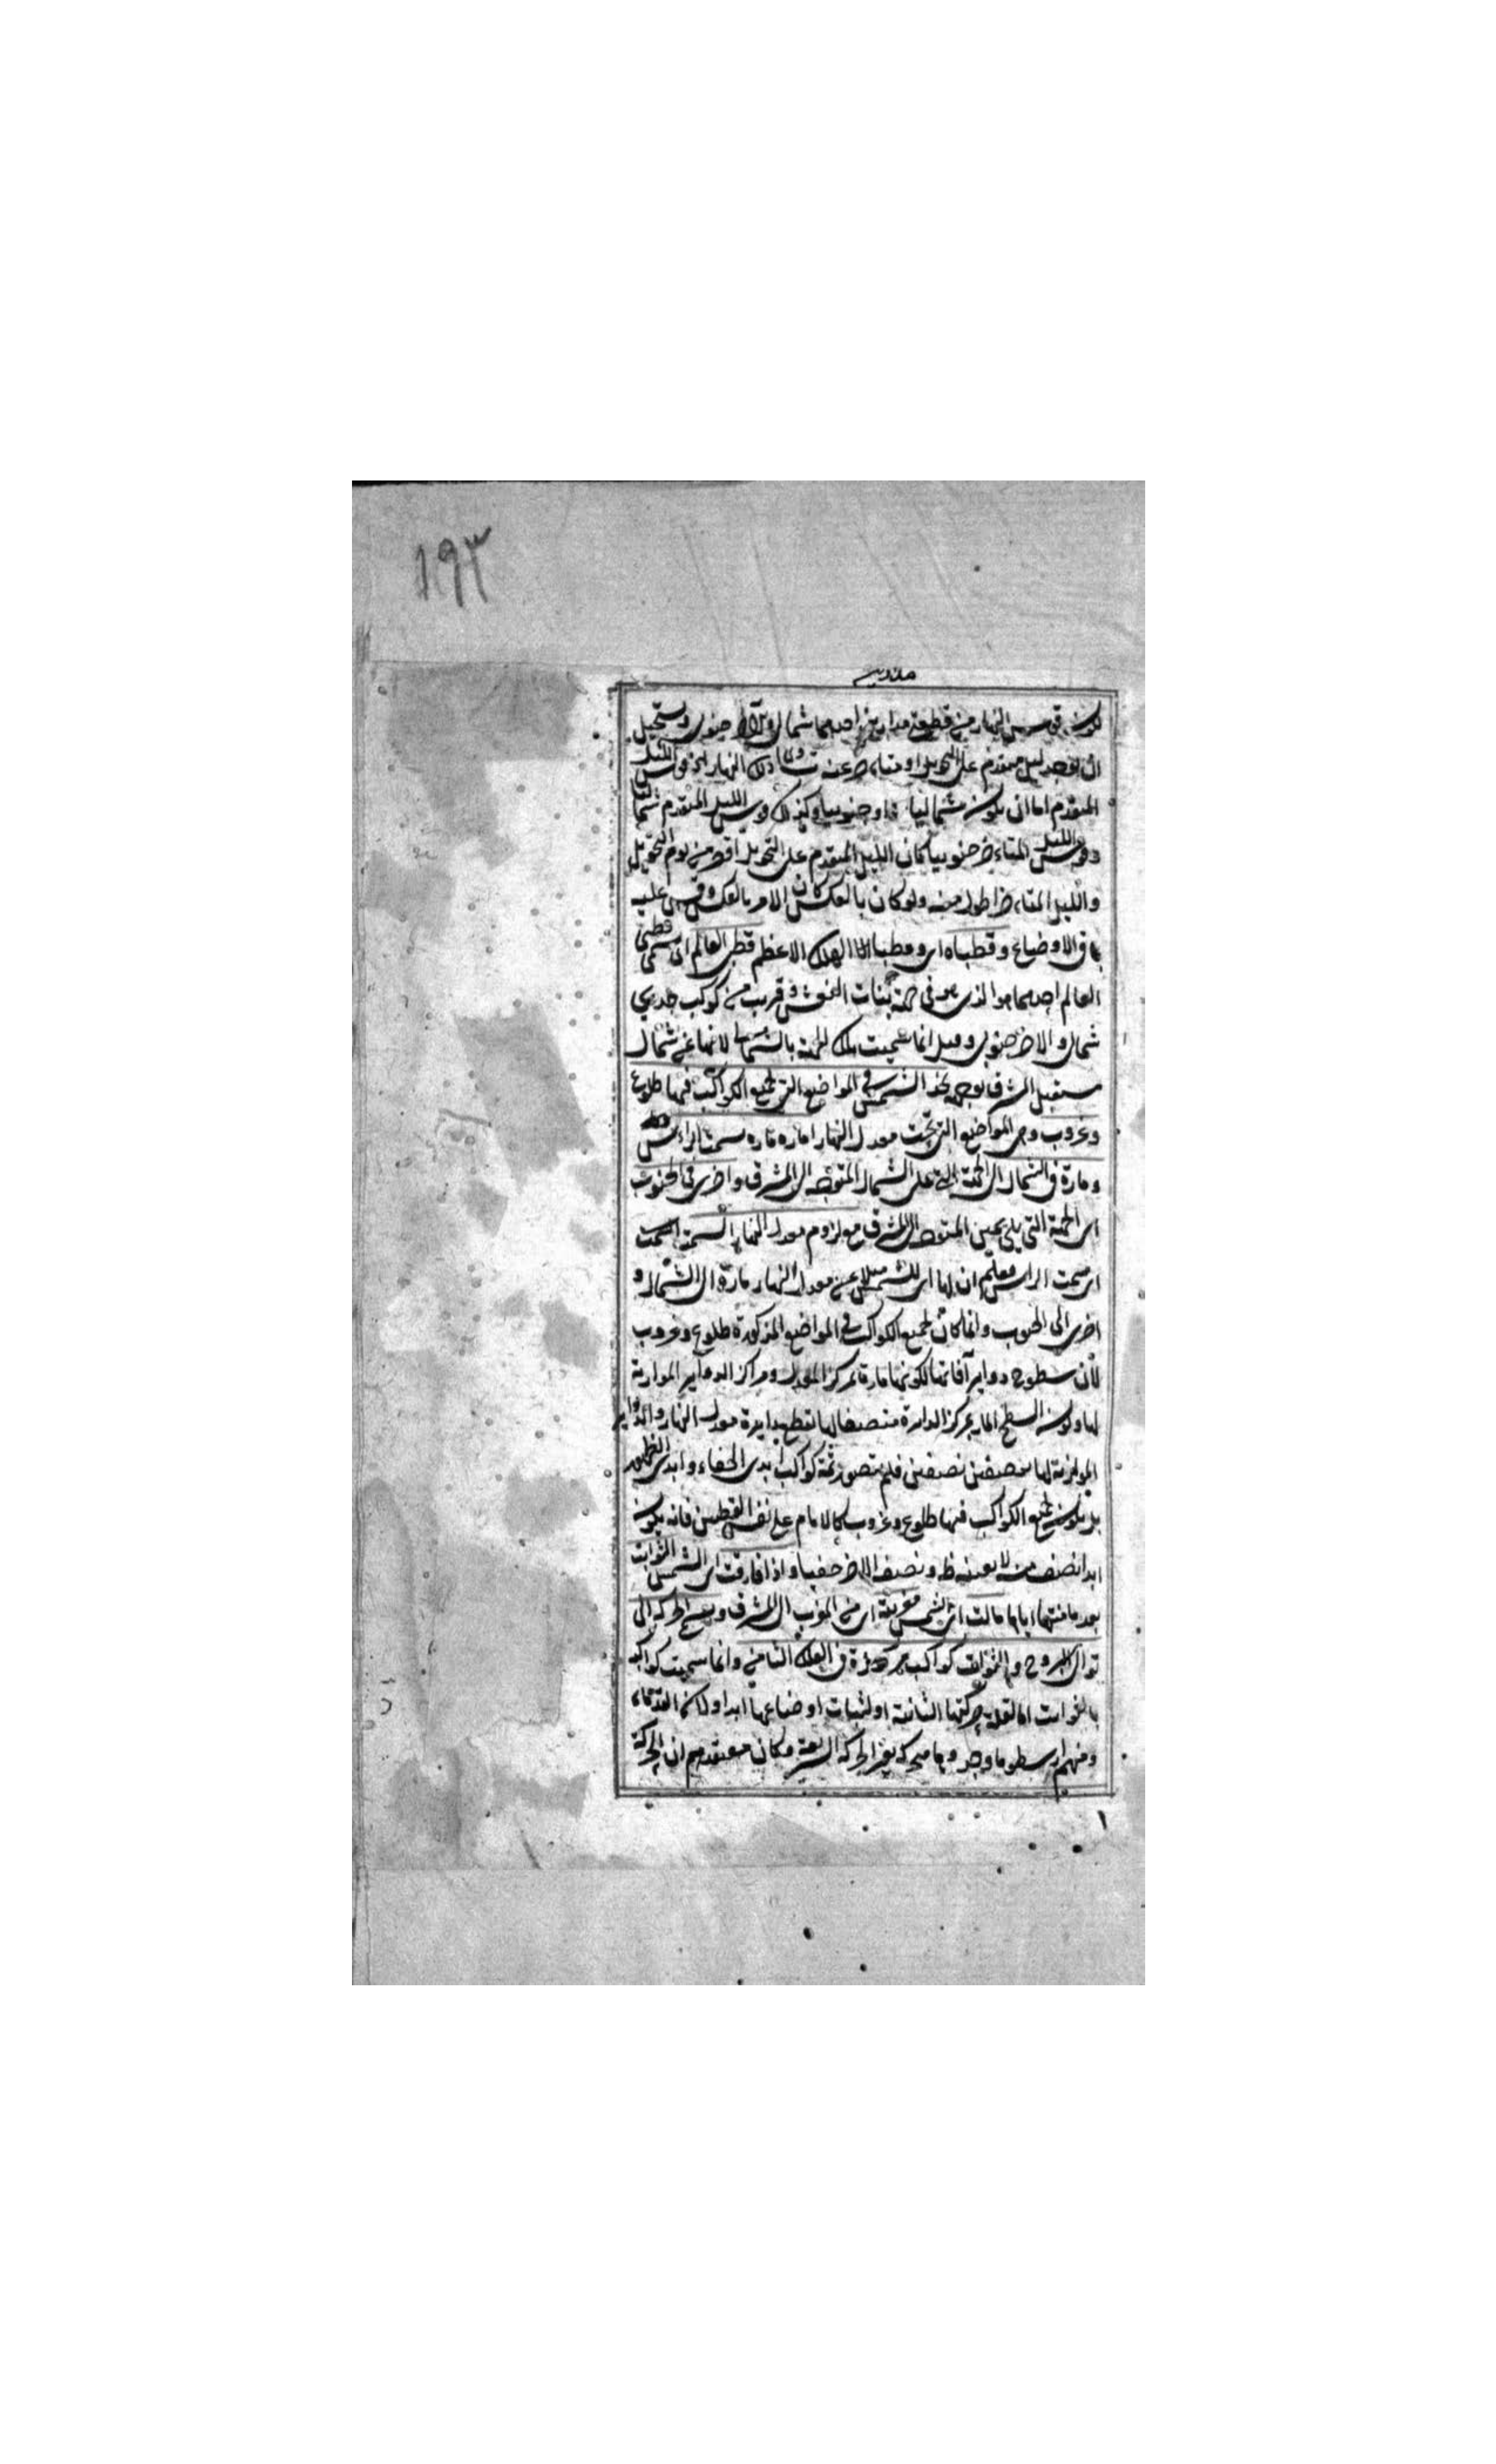 ١٩٣
يكون قوس النهار من قطعة مدارين احدهما شمالي والآخر جنوبي ويستحيل
ان يوجد ليل متقدم على التحويل او متاخر عنه ذلك النهار لان قوس الليل
المتقدم اما ان يكون شماليا او جنوبيا وكذلك قوس الليل المتقدم شماليا
وقوس الليل المتاخر جنوبيا كان الليل المتقدم على التحويل اقصر من يوم التحويل
والليل المتاخر اطول منه ولو كان بالعكس كان الامر بالعكس وقس عليه
باقي الاوضاع وقطباه اي وقطبا الفلك الاعظم قطبي العالم اي يسمى قطبي
العالم احدهما هو الذي هو في جهة بنات النعش وقريب من كوكب جدي
شمالي والاخر جنوبي وقيل انما سميت تلك الجهة بالشمال لانها عن شمال
مستقبل المشرق بوجهه نجد الشمس في المواضع التي لجميع الكواكب فيها طلوع
وغروب وهي المواضع التي تحت معدل النهار اماره ماره بسمت الراس
وتارة في الشمال الى الجهة التي على الشمال المتوجه الى المشرق واخرى في الجنوب
اي الجهة التي يلي يمين المتوجه الى المشرق مع لزوم معدل النهار السمت اي سمت
اي سمت الراس فعلم ان لها اي للشمس ميلا عن معدل النهار تارة الى الشمال و
اخرى الى الجنوب وانما كان لجميع الكواكب في المواضع المذكورة طلوع وغروب
لان سطوح دواير آفاقها لكونها مارة بمركز المعدل ومراكز الدواير الموازية
لها وكون السطح المار بمركز الدايرة منصفا لها تقطع دايرة معدل النهار والدواير
الموازية لها بنصفين نصفين فلم يتصور ثمة كواكب ابدي الخفاء وابدي الظهور
بل يكون لجميع الكواكب فيها طلوع وغروب كالا ما على نفس القطبين فانه يكون
ابدا نصف منه لا بعينه ظ ونصفه الاخر خفيا واذا فارقت اي الشمس الثوابت
بعد مقارنتها اياها مالت اي الشمس من المغرب الى المشرق وبسمى الحركة الى
توالي البروج والثوابت كواكب مركوزة في الفلك الثامن وانما سميت كواكبه
بالثوابت اما لقلة حركتها الثانية او لثبات اوضاعها ابدا ولان القدماء
ومنهم ارسطو ما وجدوها متحركة بغير الحركة السريعة وكان معتقدهم ان الحركة